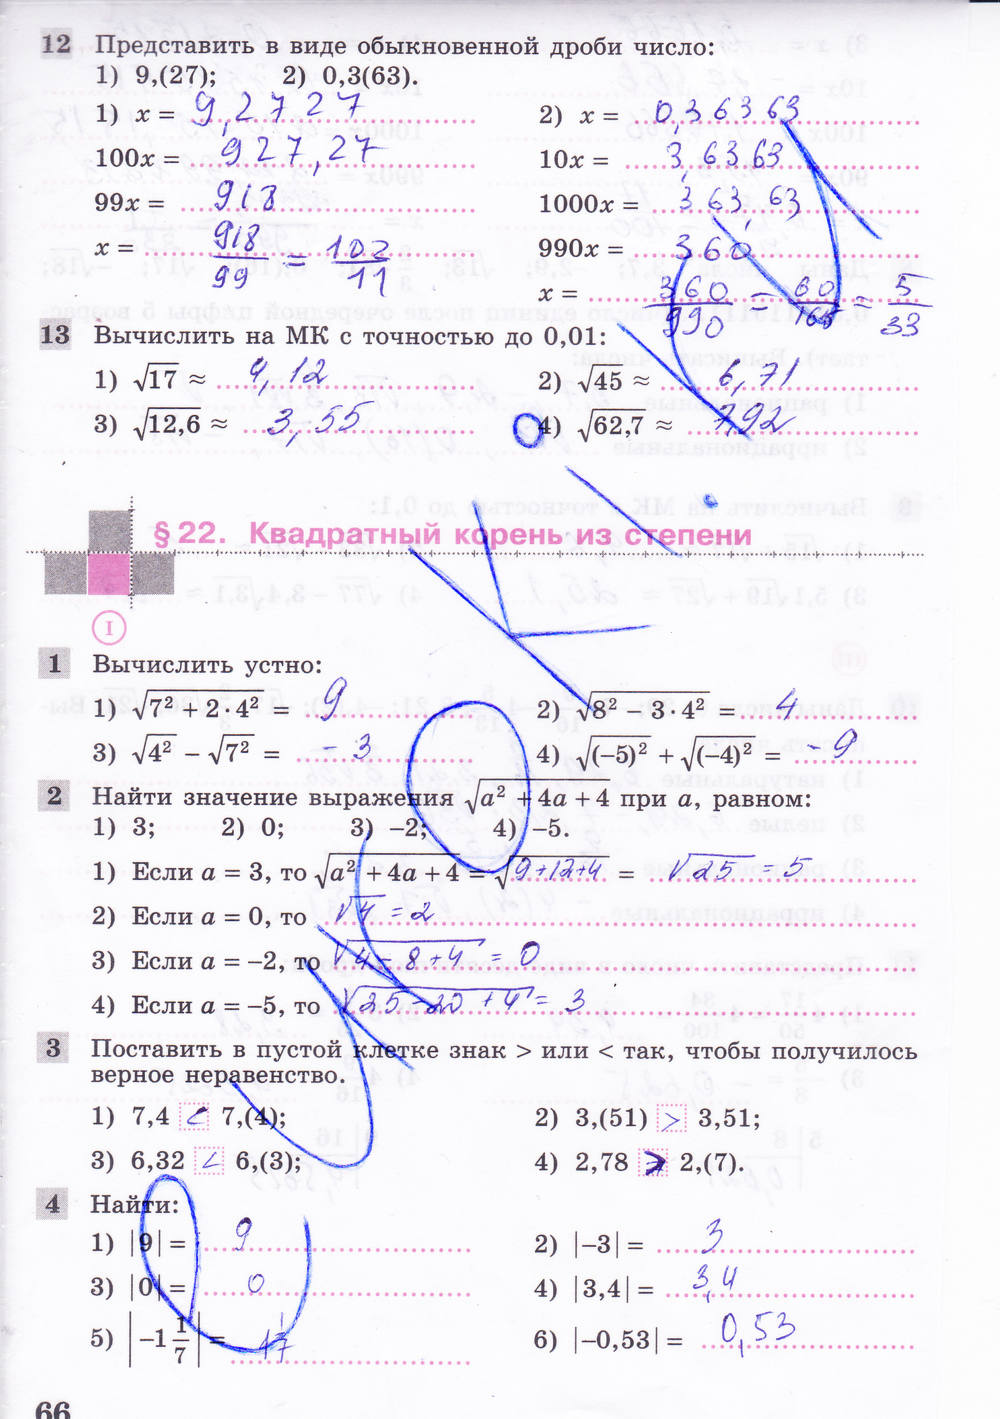 12 Представить в виде обыкновенной дроби число:
1) 9,(27); 2) 0,3(63).
1) x = 9,2727
2) x = 0,36363
100x = 927,27
10x = 3,6363
99x = 918
1000x = 363,63
x = 918/99 = 102/11
990x = 360
x = 360/990 = 5/33
13 Вычислить на МК с точностью до 0,01:
1) √17 ≈ 4,12
2) √45 ≈ 6,71
3) √12,6 ≈ 3,55
4) √62,7 ≈ 7,92
§ 22. Квадратный корень из степени
I
1 Вычислить устно:
1) √7² + 2 · 4² = 9
2) √8² − 3 · 4² = 4
3) √4² − √7² = −3
4) √(−5)² + √(−4)² = −9
2 Найти значение выражения √a² + 4a + 4 при a, равном:
1) 3; 2) 0; 3) −2; 4) −5.
1) Если a = 3, то √a² + 4a + 4 = √9+12+4 = √25 = 5
2) Если a = 0, то √4 = 2
3) Если a = −2, то √4 − 8 + 4 = 0
4) Если a = −5, то √25 − 20 + 4 = 3
3 Поставить в пустой клетке знак > или < так, чтобы получилось
верное неравенство.
1) 7,4 < 7,(4);
2) 3,(51) > 3,51;
3) 6,32 < 6,(3);
4) 2,78 > 2,(7).
4 Найти:
1) |9| = 9
2) |−3| = 3
3) |0| = 0
4) |3,4| = 3,4
5) |−1 1/7| =
6) |−0,53| = 0,53
66